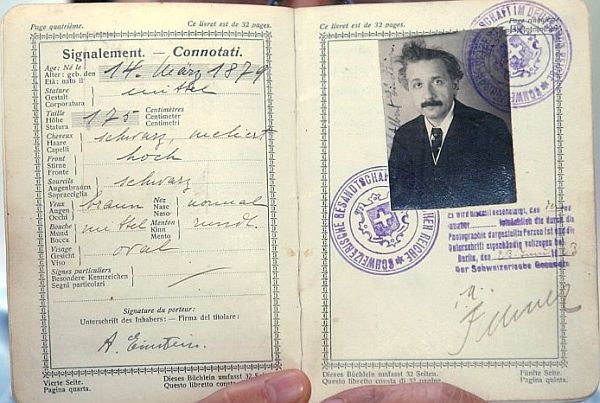 Page quatrième.
Ce livret est de 32 pages.
Signalement. — Connotati.
Age: Né le
Alter: geb. den
Età: nato il
14. März 1879
Stature
Gestalt
Corporatura
mittel
Taille
Höhe
Statura
175
Centimètres
Centimeter
Centimetri
Cheveux
Haare
Capelli
schwarz, meliert
Front
Stirne
Fronte
hoch
Sourcils
Augenbraun
Sopracciglia
schwarz
Yeux
Augen
Occhi
braun
Nez
Nase
Naso
normal
Bouche
Mund
Bocca
mittel
Menton
Kinn
Mento
rund
Visage
Gesicht
Viso
oval
Signes particuliers
Besondere Kennzeichen
Segni particolari
Signature du porteur:
Unterschrift des Inhabers: — Firma del titolare:
A. Einstein.
Vierte Seite.
Pagina quarta.
Dieses Büchlein umfasst 32 Seiten.
Questo libretto consta di 32 pagine.
Ce livret est de 32 pages.
Page
SCHWEIZERISCHE GESANDTSCHAFT
DEUTSCHEN REICHE
Es wird hiermit bescheinigt, dass
die durch die
Photographie dargestellte Person ist und die
Unterschrift eigenhändig vollzogen hat
Berlin, den
Der Schweizerische Gesandte
Dieses Büchlein umfasst 32 Seiten.
Questo libretto consta di 32 pagine.
Fünfte Seite.
Pagina quinta.